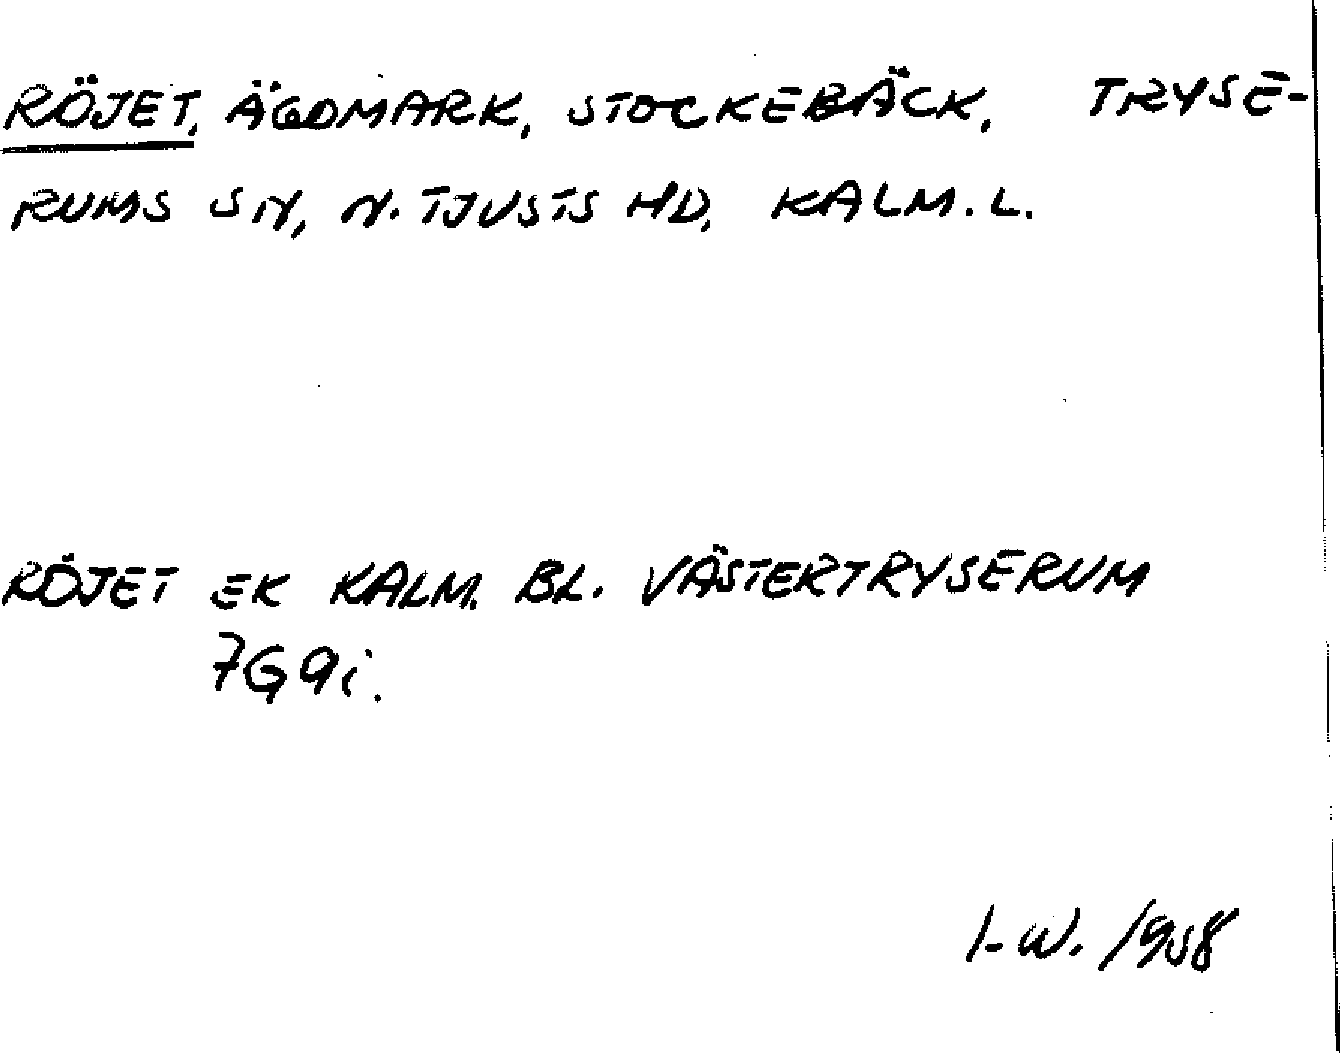 RÖJET, ÄGOMARK, STOCKEBÄCK, TRYSE-
RUMS SN, N. TJUSTS HD, KALM. L.
RÖJET EK KALM. BL. VÄSTERTRYSERUM
7G9i.
I-W. 1958